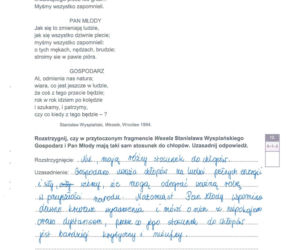 Myśmy wszystko zapomnieli.
PAN MŁODY
Jak się to zmieniają ludzie,
jak się wszystko dziwnie plecie;
myśmy wszystko zapomnieli:
o tych mękach, nędzach, brudzie;
stroimy się w pawie pióra.
GOSPODARZ
Ot, odmienia nas natura;
wiara, co jest jeszcze w ludzie,
że coś z tego przecie będzie;
rok w rok idziem po kolędzie
i szukamy, i patrzymy,
czy co kiedy z tego będzie – ?
Stanisław Wyspiański, Wesele, Wrocław 1984.
Rozstrzygnij, czy w przytoczonym fragmencie Wesela Stanisława Wyspiańskiego
Gospodarz i Pan Młody mają taki sam stosunek do chłopów. Uzasadnij odpowiedź.
Rozstrzygnięcie: Nie, mają różny stosunek do chłopów.
Uzasadnienie: Gospodarz uważa chłopów za ludzi pełnych
i siły, wierzy, że mogą odegrać ważną rolę
w przyszłości narodu. Natomiast Pan Młody wspomina
dawne krwawe wydarzenia i mówi o nich z niepokojem
oraz dystansem, przez co jego stosunek do chłopów
jest bardziej krytyczny i nieufny.